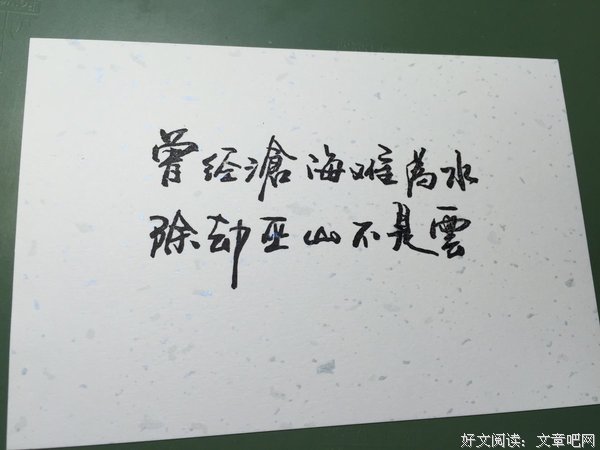 曾经滄海难為水
除却巫山不是雲
好文阅读：文章吧网